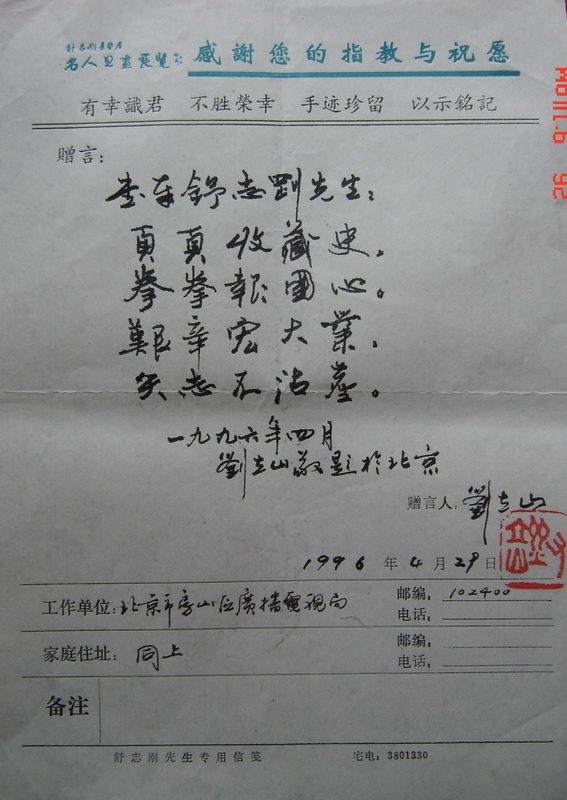 舒志刚
名人书画展览 感謝您的指教与祝愿
有幸識君 不胜榮幸 手迹珍留 以示銘記
赠言:
舒志剛先生:
頁頁收藏史。
拳拳報國心。
艱辛宏大業,
矢志不沾塵。
一九九六年四月
劉立山敬題於北京
赠言人: 劉立山
1996 年 4 月 29 日
工作单位: 北京市房山区廣播電視局 邮编: 102400
电话:
家庭住址: 同上 邮编:
电话:
备注
舒志刚先生专用信笺 宅电: 3801330